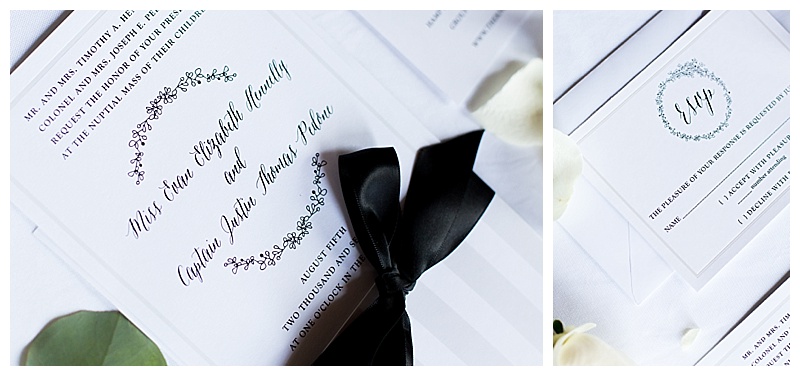 MR. AND MRS. TIMOTHY A. HE
COLONEL AND MRS. JOSEPH E. PE
REQUEST THE HONOR OF YOUR PRES
AT THE NUPTIAL MASS OF THEIR CHILDRE
Miss Evan Elizabeth Hennelly
and
Captain Justin Thomas Polone
AUGUST FIFTH
TWO THOUSAND AND S
AT ONE O'CLOCK IN THE
rsvp
THE PLEASURE OF YOUR RESPONSE IS REQUESTED BY JU
NAME
( ) ACCEPT WITH PLEASUR
number attending
( ) DECLINE WITH
MR. AND MRS. TIMO
COLONEL AND MRS.